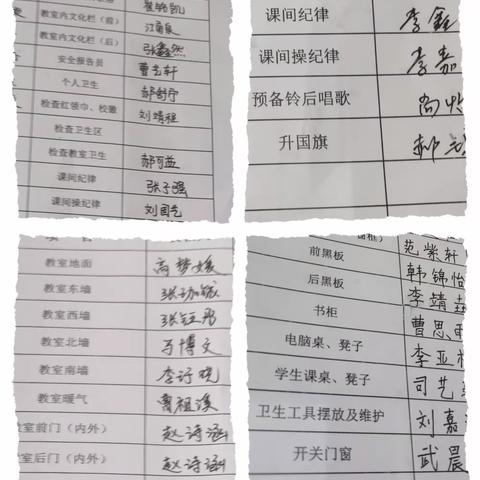 教室内文化栏（前）
教室内文化栏（后） 张鑫然
安全报告员 曹艺轩
个人卫生 郝舒宁
检查红领巾、校徽 刘靖程
检查卫生区
检查教室卫生 郝可益
课间纪律 张子强
课间操纪律 刘国艺
课间纪律 李鑫
课间操纪律 李嘉
预备铃后唱歌
升国旗 郝
教室地面 高梦媛
教室东墙
教室西墙 张钰彤
教室北墙 于博文
教室南墙
教室暖气 曹祖溪
室前门（内外） 赵诗涵
室后门（内外） 赵诗涵
前黑板 范紫轩
后黑板 韩锦怡
李靖垚
书柜 曹思雨
电脑桌、凳子 李亚
学生课桌、凳子 司艺
卫生工具摆放及维护 刘嘉
开关门窗 武晨